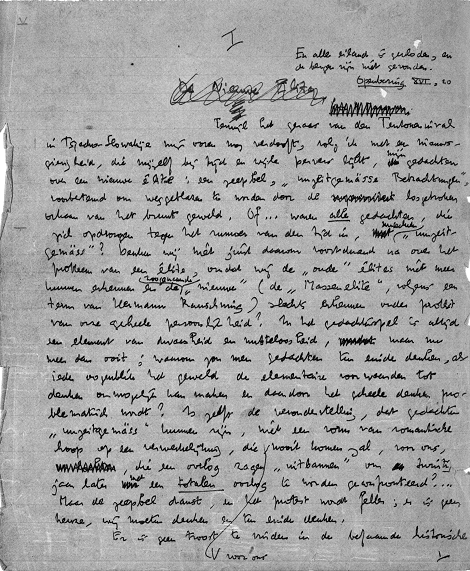 I
En alle eiland is gevloden, en
de bergen zijn niet gevonden.
Openbaring XVI, 20
De Nieuwe Elite
Terwijl het geraas van den Teutoneninval
in Tsjecho-Slowakije mijn ooren nog verdooft, volg ik met een nieuws-
gierigheid, die mijzelf bij tijd en wijle pervers lijkt, mijn gedachten
over een nieuwe élite: een zeepbel, "unzeitgemässe Betrachtungen"
voorbestemd om weggeblazen te worden door de losgebroken
orkaan van het bruut geweld. Of... waren alle gedachten, die
zich opdrongen tegen het rumoer van den tijd in, "unzeit-
gemäss"? Denken wij niet juist daarom voortdurend na over het
probleem van een élite, omdat wij de "oude" élites niet meer
kunnen erkennen en de zoogenaamde "nieuwe" (de "Massenelite", volgens een
term van Hermann Rauschning) slechts erkennen onder protest
van onze geheele persoonlijkheid? In het gedachtenspel is altijd
een element van dwaasheid en nutteloosheid, maar nu
meer dan ooit; waarom zou men gedachten ten einde denken, als
ieder oogenblik het geweld de elementaire voorwaarden tot
denken onmogelijk kan maken en daardoor het geheele denken pro-
blematisch wordt? Is zelfs de veronderstelling, dat gedachten
"unzeitgemäss" kunnen zijn, niet een vorm van romantische
hoop op een verwerkelijking, die nooit komen zal, voor ons,
die een oorlog zagen "uitbannen" om twintig
jaar later met een totalen oorlog te worden geconfronteerd?...
Maar de zeepbel danst, en het protest wordt feller; er is geen
keuze, wij moeten denken en ten einde denken.
Er is geen troost te vinden in de bepaalde historische
V voor ons